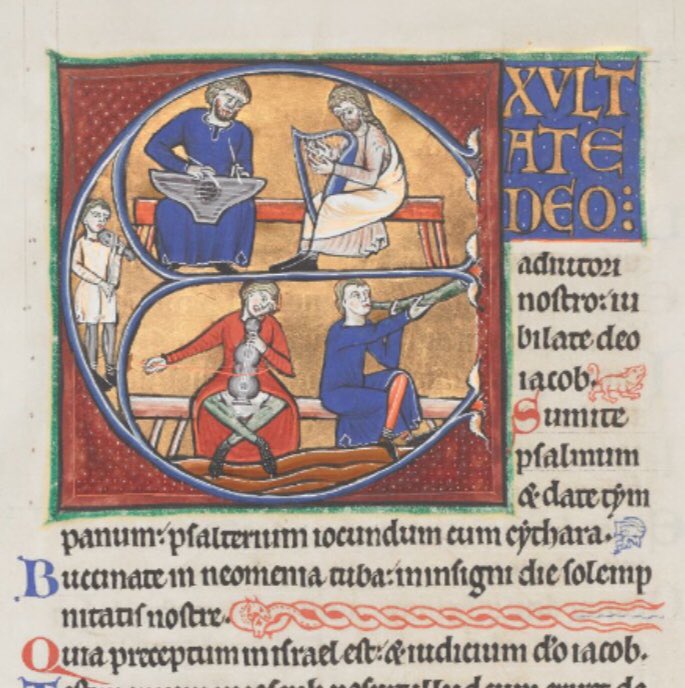 EXVLT
ATE
DEO:
adiutori
nostro: iu
bilate deo
iacob.
Sumite
psalmum
& date tym
panum: psalterium iocundum cum cythara.
Buccinate in neomenia tuba: in insigni die solemp
nitatis nostre.
Quia preceptum in israel est: & iudicium d'o iacob.